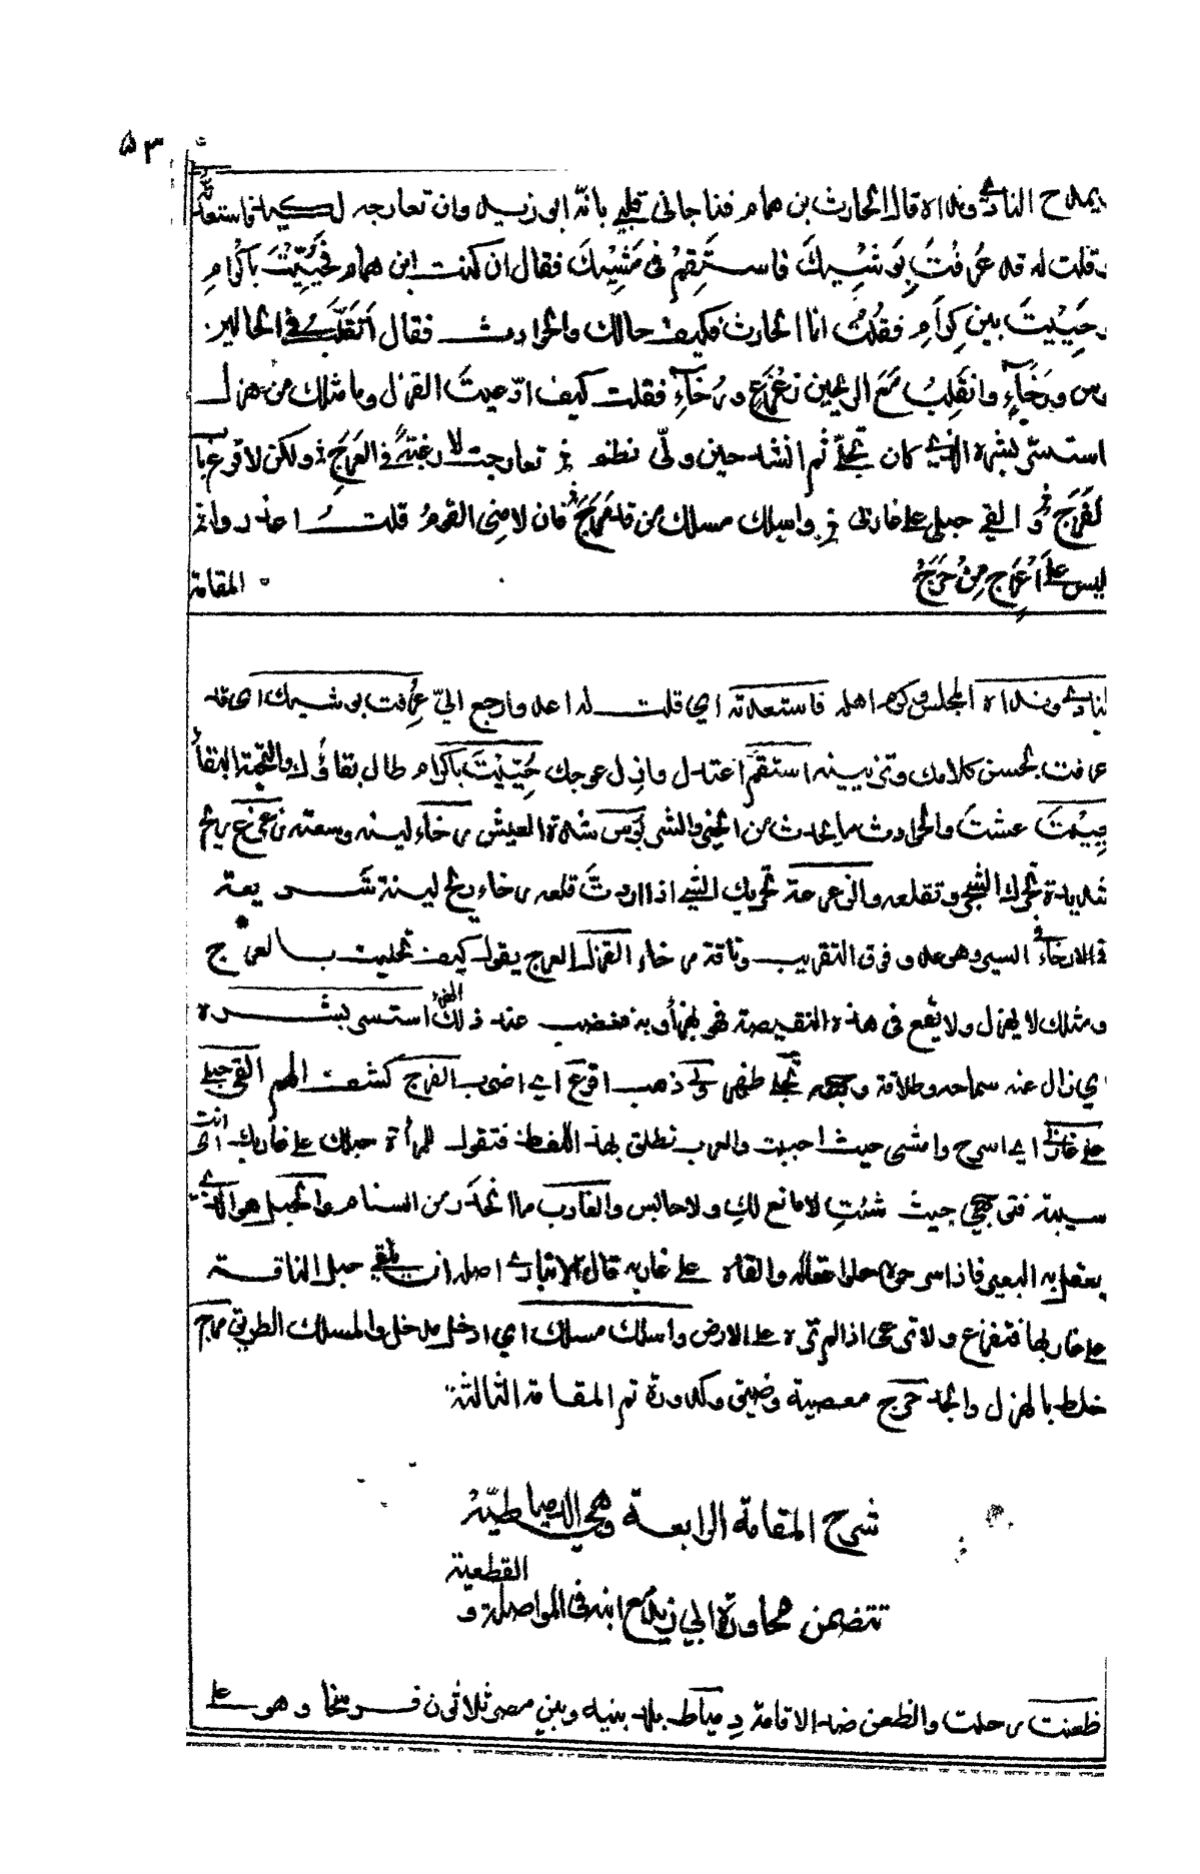 ٥٣
بمدح النادي ونداه قال الحارث بن همام فناجاني قلبي بانه ابو زيد وان تعارجه لكيد فاستعدته
وقلت له قد عُرفْتَ بِوَشْيِكَ فاستَقِمْ فى مَشْيِكَ فقال ان كنت ابن همام فحُيِّيْتَ باكرام
وحَيِيْتَ بين كِرَام فقلتُ انا الحارث فكيف حالك والحوادث فقال أتقلّب فى الحالين
بؤس ورَخَآءٍ وانقلِبُ مَعَ الريحين زعْزَعٍ ورُخآءٍ فقلت كيف ادّعيتَ القزل وما مثلك من هزل
استسرّ بشره الذي كان تجلّى ثم انشد حين ولّى تعارجت لا رغبةً فى العَرَجِ ولكن لاقرع باب
الفَرَج والقي حبلي على غاربي واسلك مسلك من قد مَرَجَ فان لامنى القومُ قلتُ اعذروا
ليس على أعْرَج مِنْ حَرَجْ
المقامة
النادي ونداه المجلس وكرم اهله فاستعدته اي قلت له اعد وارجع اليّ عُرفت بوشيك اي قد
عرفت بحسن كلامك وتزيينه استقم اعتدل وازل عوجك حُيِّيْتَ باكرام طال بقاؤك والتحية البقاء
حييْتَ عشتَ والحوادث ما يحدث من الخير والشر بؤس شدة العيش رخاء لينه وسعته زعزع ريح
شديدة تحرك الشجر وتقلعه والزعزعة تحريك الشيء اذا اردتَ قلعه رخاء ريح لينة
الارخاء السير وهو عدو فوق التقريب وناقة رخاء القزل العرج يقول كيف تحليت بالعرج
ومثلك لا يهزل ولا يقع فى هذه النقيصة عند ذلك استسر بشره
اي زال عنه سماحه وطلاقة وجهه تجلى ظهر ولّى ذهب اقرع اي اضرب الفرج كشف الهم القي حبلي
على غاربي اي اسرح وامشى حيث احببت والعرب تطلق بهذا اللفظ فتقول للمرأة حبلك على غاربك اى انت
سيبة حيث شئتِ لا مانع لكِ ولا حابس والغارب ما انحدر من السنام والحبل هو الذي
يعقل به البعير فاذا سرحوه حلوا عقاله والقاه على غاربه قال الانباري اصله ان يلقي حبل الناقة
على غاربها ولا ترعى اذا لم تره على الارض واسلك مسلك اي ادخل مدخل والمسلك الطريق مرج
خلط بالهزل والجد حرج معصية وضيق وكدورة تم المقامة الثالثة
شرح المقامة الرابعة وهي الدمياطيّة
تتضمن محاورة ابي زيد مع ابنه فى المواصلة و
القطعية
ظعنت رحلت والظعن ضد الاقامة دمياط بلد بينه وبين مصر ثلاثون فرسخا وهو على